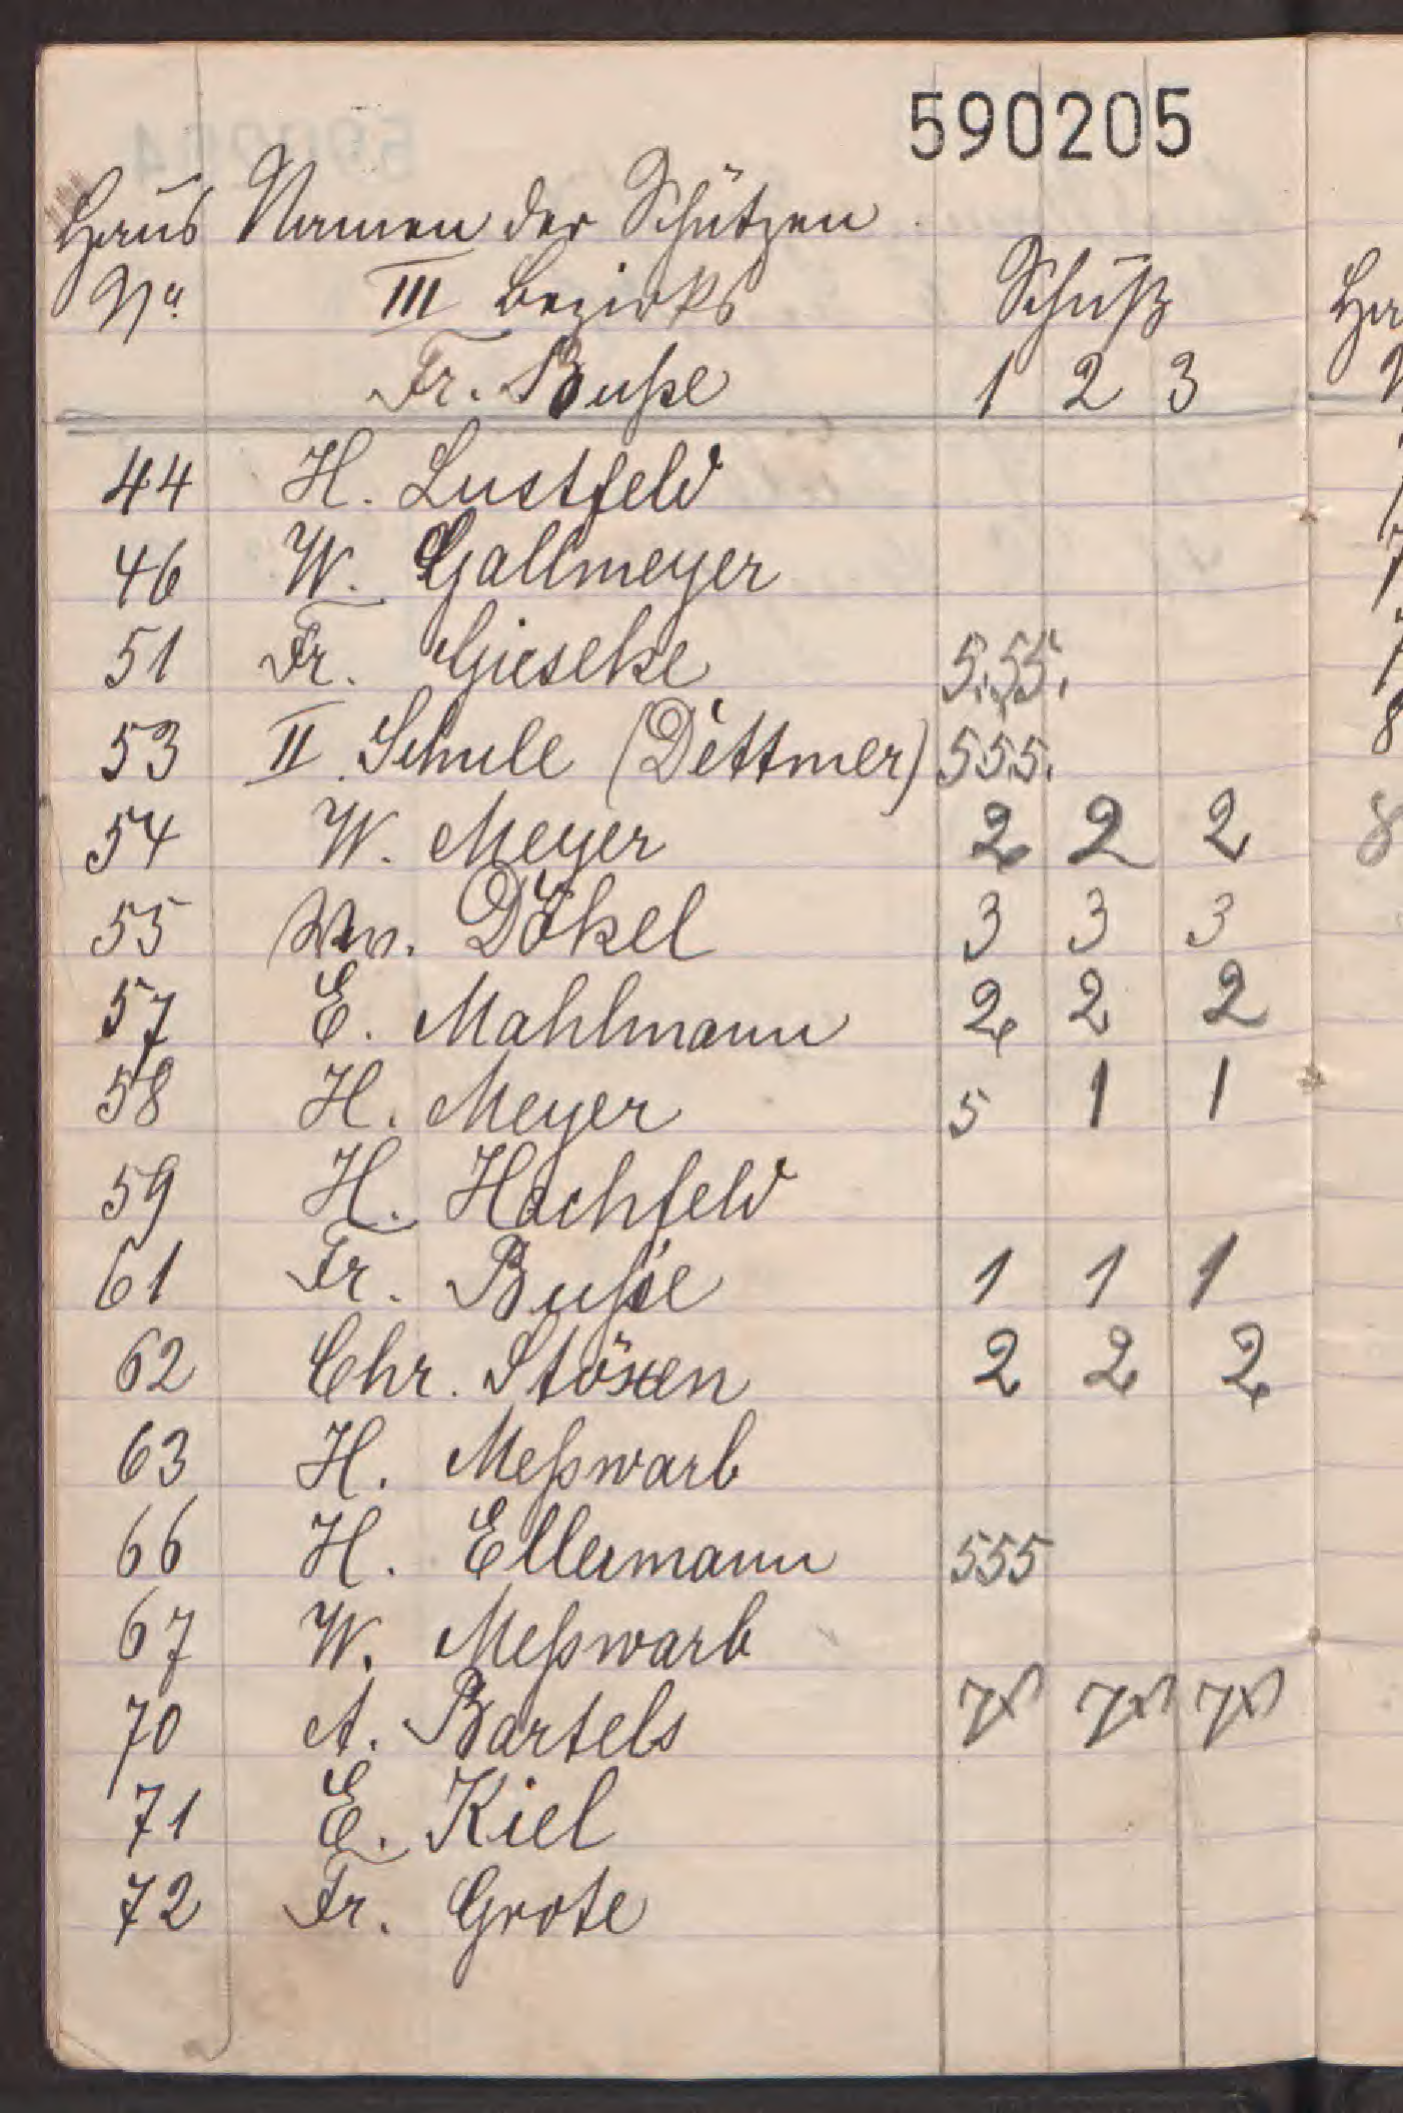 590205
Haus Namen der Schützen
No. III Bezirks Schuß
Fr. Buße 1 2 3
44 H. Lustfeld
46 W. Gallmeyer
51 Fr. Gieseke 5.55.
53 II Schule (Dettmer) 555.
54 W. Meyer 2 2 2
55 Ww. Dökel 3 3 3
57 E. Mahlmann 2 2 2
58 H. Meyer 5 1 1
59 H. Hachfeld
61 Fr. Buße 1 1 1
62 Chr. Stöxen 2 2 2
63 H. Meßwarb
66 H. Ellermann 555
67 W. Meßwarb
70 A. Bartels
71 E. Kiel
72 Fr. Grote